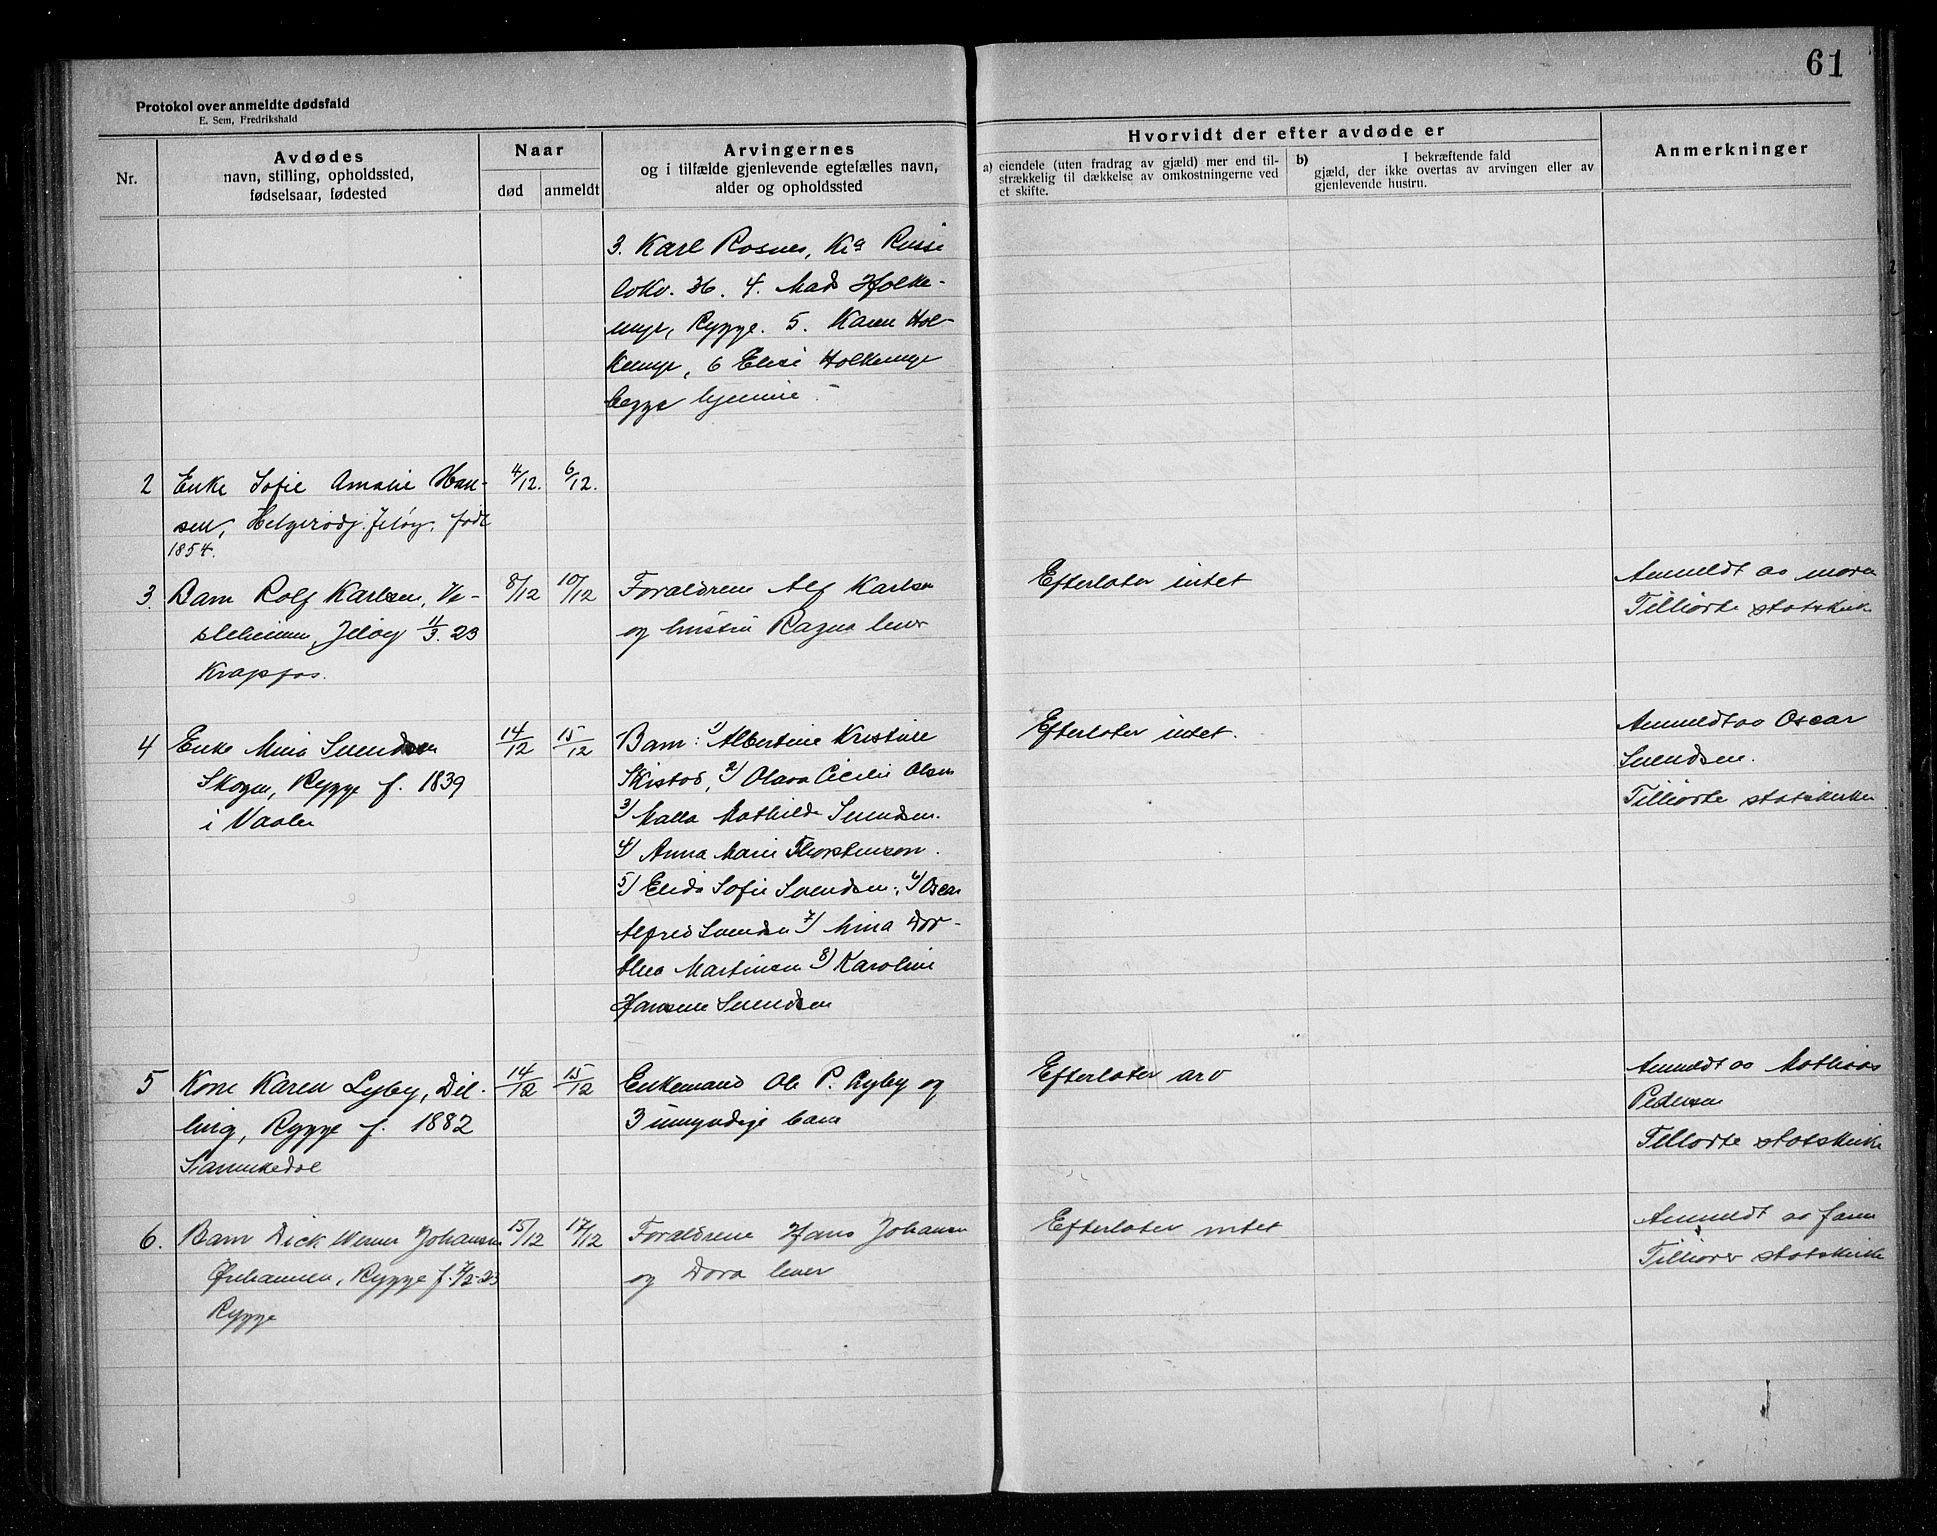 61
Protokol over anmeldte dødsfald
E. Sem, Fredrikshald
Nr.
Avdødes
navn, stilling, opholdssted,
fødselsaar, fødested
Naar
død
anmeldt
Arvingernes
og i tilfælde gjenlevende egtefælles navn,
alder og opholdssted
Hvorvidt der efter avdøde er
a) eiendele (uten fradrag av gjæld) mer end til-
strækkelig til dækkelse av omkostningerne ved
et skifte.
b) I bekræftende fald
gjæld, der ikke overtas av arvingen eller av
gjenlevende hustru.
Anmerkninger
3. Karl Rosnes, Kra
4. Mads Holke-
myr, Rygge. 5. Karen Hol-
kemyr, 6 Elise Holkemyr
begge hjemme.
2 Enke Sofie Amalie Han-
sen, Helgerødj. Jeløy. født
1854.
4/12. 6/12.
3. Barn Rolf Karlsen, Ve-
sleheimen, Jeløy 11/3. 23
Krapfos.
8/12 10/12
Forældrene Alf Karlsen
og hustru Ragna lever
Efterlater intet
Anmeldt av moren
Tilhørte statskirk
4 Enke Mina Svendsen
Skogen, Rygge f. 1839
i Vaaler
14/12 15/12
Barn: 1) Albertine Kristine
Skistad, 2) Olava Cecilie Olsen
3) Malla Mathilde Svendsen.
4) Anna Marie Thorstensen.
5) Elida Sofie Svendsen, 6) Oscar
Alfred Svendsen 7) Mina Dor-
thea Martinsen 8) Karoline
Hansine Svendsen
Efterlater intet.
Anmeldt av Oscar
Svendsen.
Tilhørte statskirken
5 Kone Karen Lyby, Dil-
ling, Rygge f. 1882
Sannikedal
14/12 15/12
Enkemand Ole P. Lyby og
3 umyndige barn
Efterlater arv
Anmeldt av Mathias
Pedersen
Tilhørte statskirke
6. Barn Dick Werner Johansen
Ørehavnen, Rygge f. 7/2-23
Rygge
15/12 17/12
Forældrene Hans Johansen
og Dora lever
Efterlater intet
Anmeldt av faren
Tilhører statskirke